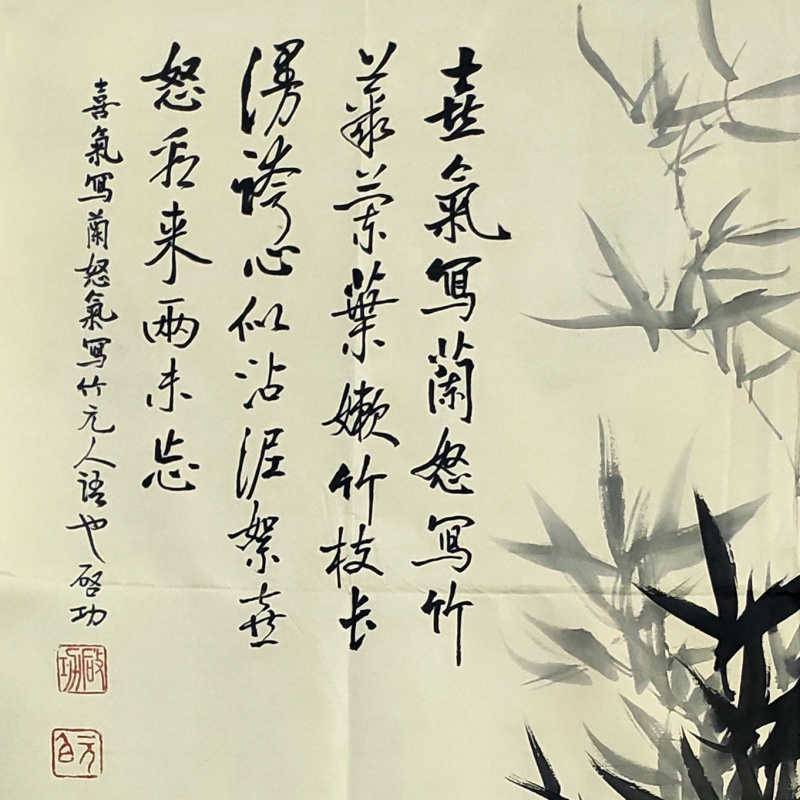 喜氣寫蘭怒寫竹
叢蘭葉嫩竹枝长
漫誇心似沾泥絮喜
怒看来兩未忘
喜氣寫蘭怒氣寫竹元人語也啓功
啟功
元白